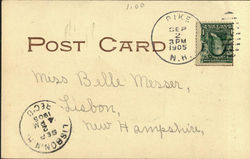 1.00
PIKE
SEP
2
3PM
1905
N.H.
POST CARD
Miss Belle Messer,
Lisbon,
New Hampshire,
LISBON, N.H.
SEP
4
1905
REC'D